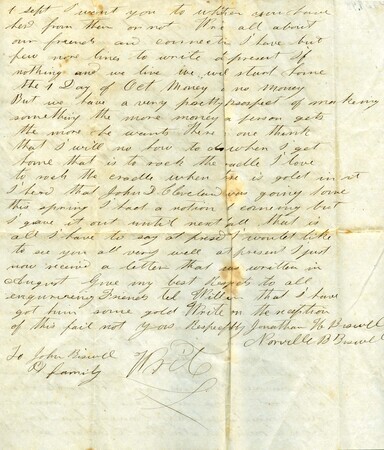 1 Sept I want you to whether you have
herd from them or not Write all about
our friends and connects I have but
few more lines to write a present If
nothing and we live we will start home
the 1 Day of Oct Money or no Money
But we have a very pretty prospect of making
something the more money a person gets
the more he wants there one think
that I will no how to do when I get
home that is to rock the cradle I love
to rock the cradle when is gold in it
I herd that John D Cleveland was going home
this spring I had a notion of coming but
I gave it out until next fall that is
all I have to say at present I would like
to see you all very well at present I just
now receivd a letter that was written in
August Give my best respects to all
enquireing Friends tel William that I have
got him some gold Write on the reception
of this fail not yours Respectfly Jonathan H Biswell
Norville B Biswell
To John Biswell
& family
Write